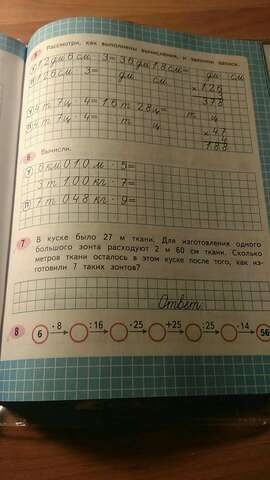 5 Рассмотри, как выполнены вычисления, и заполни записи.
12 дм 6 см · 3 = 36 дм 18 см = дм см
126 см · 3 = дм см.
× 126
3
378
4 т 7 ц · 4 = 16 т 28 ц = т ц
4 т 7 ц · 4 = т ц
× 47
4
188
6 Вычисли.
6 км 010 м · 5=
3 т 100 кг · 7=
7 т 048 кг · 9=
7 В куске было 27 м ткани. Для изготовления одного
большого зонта расходуют 2 м 60 см ткани. Сколько
метров ткани осталось в этом куске после того, как из-
готовили 7 таких зонтов?
Ответ:
8 6 · 8 : 16 · 25 +25 : 25 · 14 56